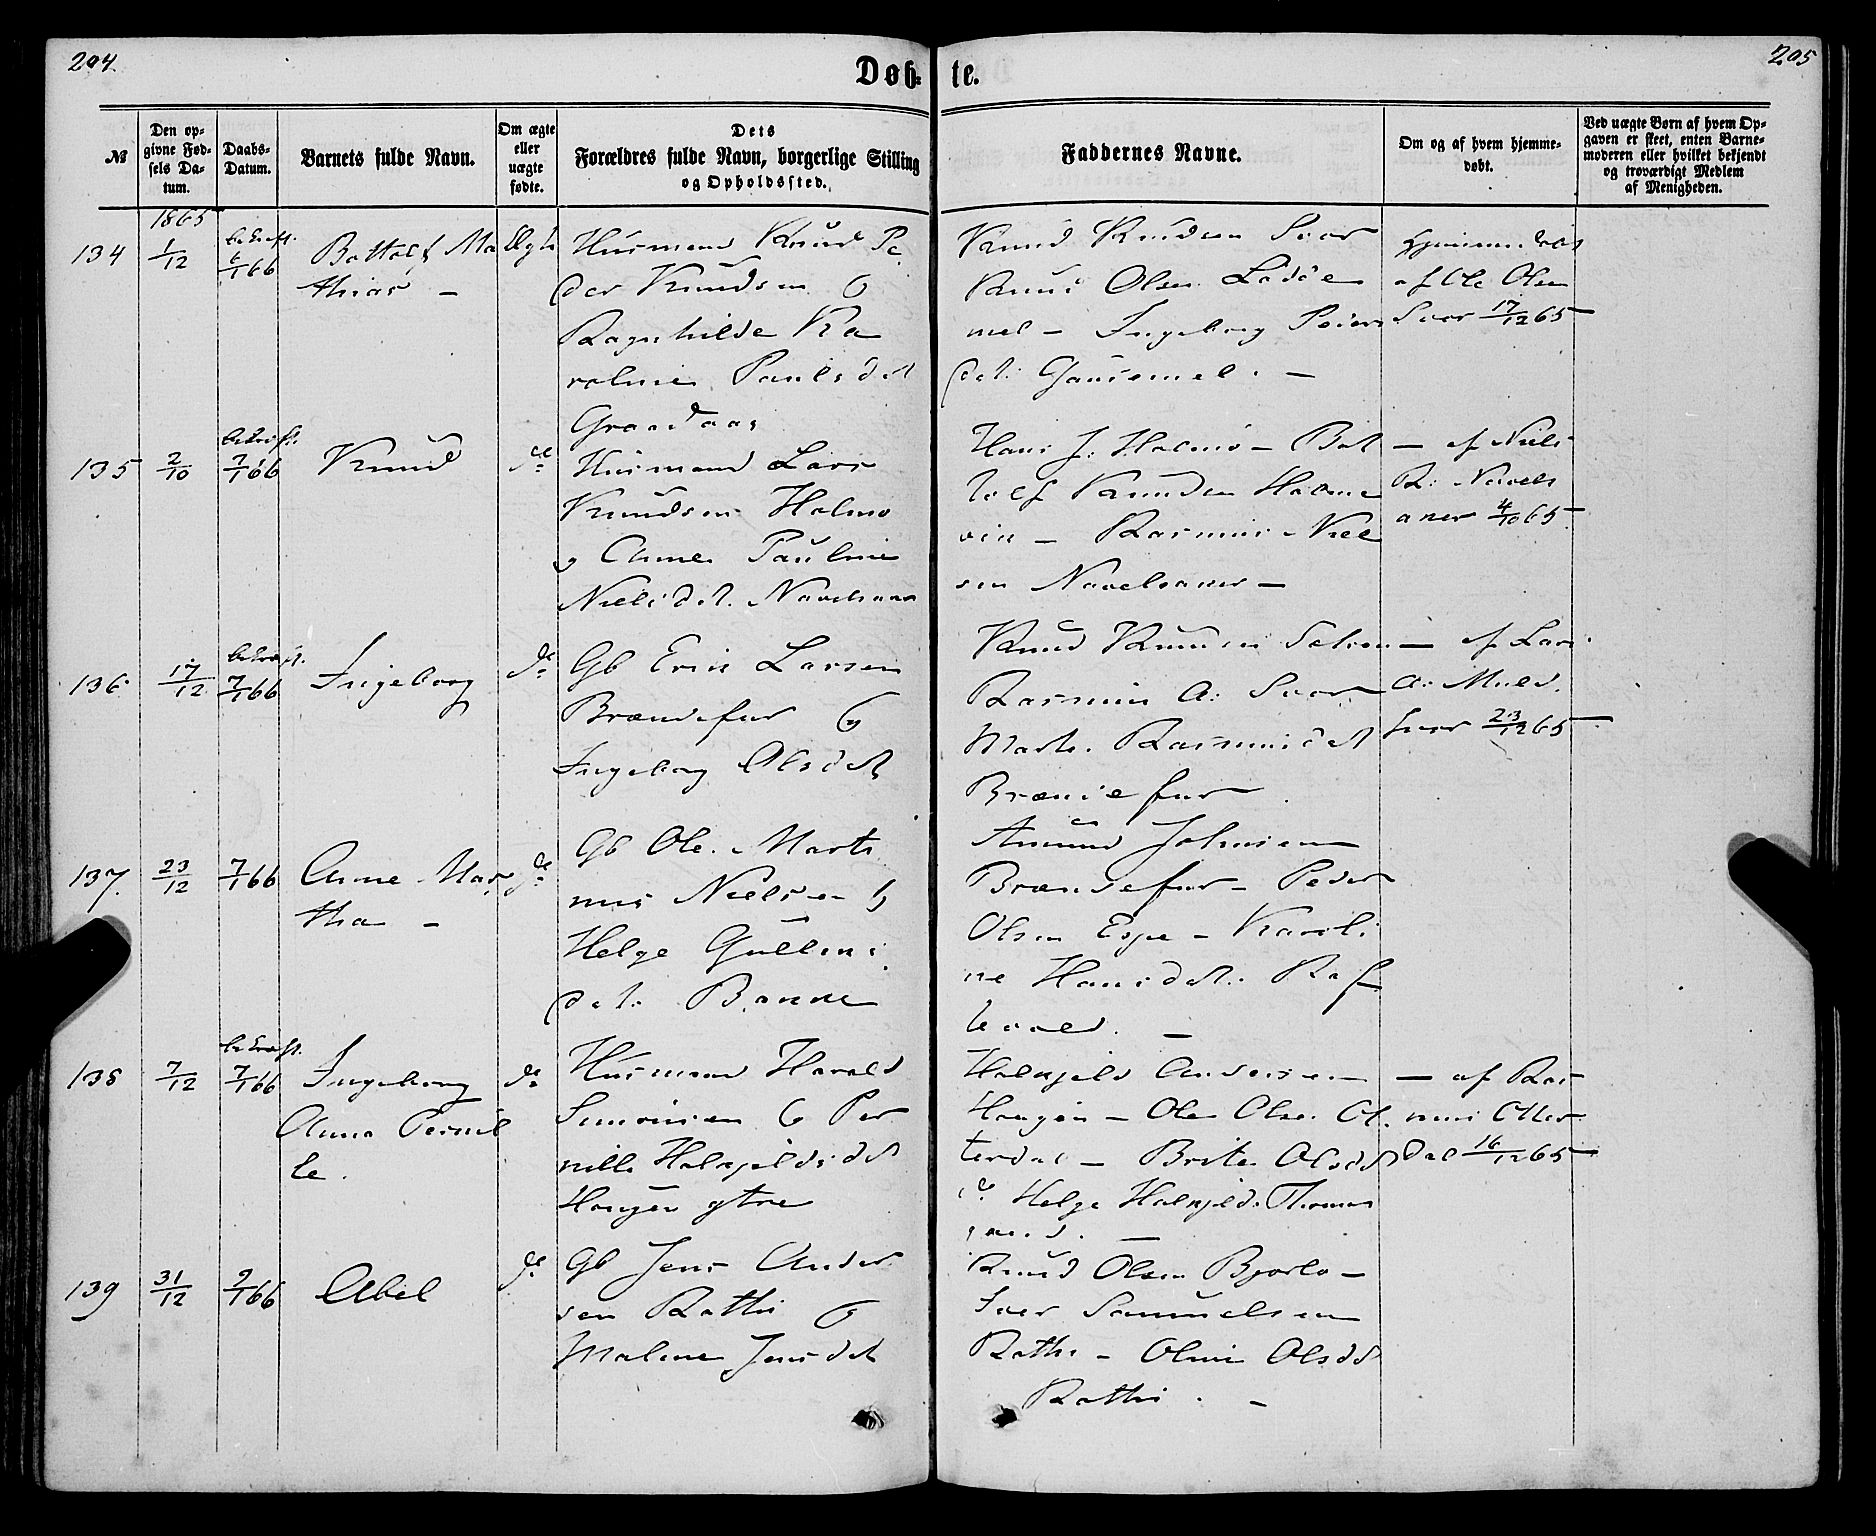 204.
205
Døb- te.
№
Den op-
givne Fød-
sels Da-
tum.
Daabs-
Datum.
Barnets fulde Navn.
Om ægte
eller
uægte
fødte.
Dets
Forældres fulde Navn, borgerlige Stilling
og Opholdssted.
Faddernes Navne.
Om og af hvem hjemme-
døbt.
Ved uægte Børn af hvem Op-
gaven er skeet, enten Barne-
moderen eller hvilket bekjendt
og troværdigt Medlem
af Menigheden.
1865
134
1/12
bekræft.
6/1 66
Bottolf Ma
thias -
Ægte
Husmand Knud Pe
der Knudsen &
Ragnhilde Ka
roline Paulsdat
Knud Knudsen
Knud Olsen
mel - Ingeborg
dat: Gausemel. -
af Ole Olsen
17/12 65
135
2/10
bekræft.
7/1 66
Knud
do
Husmand Lars
Knudsen Holmø
& Anne Pauline
Nielsdat. Navelsaker
Hans J. Holmø - Bot
tolf Knudsen Holme
vik - Rasmus Niel
sen Navelsaker -
- af Niels
R. Navels
aker 4/10 65
136
17/12
bekræft.
7/1 66
Ingeborg
do
Gb Erik Larsen
Brændefur &
Ingeborg Olsdat
Knud Knudsen
Rasmus A:
Marte Rasmusdat
Brændefur.
- af Lars
A:
23/12 65
137.
23/12
7/1 66
Anne Mar
tha -
do
Gb Ole Marti
nus Nielsen &
Helge Gullens
dat.
Amund Johnsen
Brændefur - Peder
Olsen Espe - Karoli
ne Hansdat.
138
7/12
bekræft.
7/1 66
Ingeborg
Anna Pernil
le.
do
Husmand Harald
Simonsen & Per
nille Halkjeldsdat
Haugen ytre
Halkjeld Andersen
Haugen - Ole Olsen Ot
terdal - Brite Olsdat
do Helge Halkjeld.
- af Ras
mus Otter
dal 16/12 65
139
31/12
9/1 66
Abel
do
Gb Jens Ander
sen Rathi &
Malene Jensdat
Knud Olsen Bjorlo -
Iver Samuelsen
Rathi - Oline Olsdat
Rathi. -